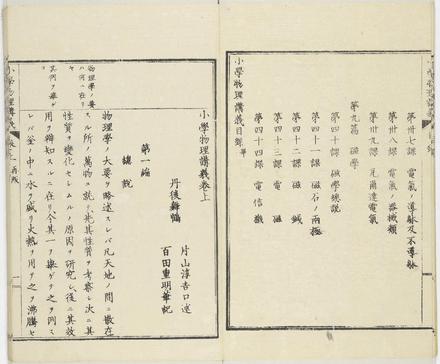 第卅七課 電氣ノ導躰及不導躰
第卅八課 電氣ノ器械類
第卅九課 瓦爾達電氣
第九篇 磁學
第四十課 磁學總説
第四十一課 磁石ノ兩極
第四十二課 磁鍼
第四十三課 電磁
第四十四課 電信機
小學物理講義目録畢
小學物理講義卷上
丹後舞鶴 片山淳吉口述
百田重明筆記
第一編
總説
物理學ノ大要ヲ略述スレバ凡天地ノ間ニ散在
スル所ノ萬物ニ就テ先其性質ヲ考察シ次ニ其
性質ヲ變化セシムルノ原因ヲ研究シ後ニ其效
用ヲ辯知スルニ在リ今其一ヲ擧ゲテ之ヲ例ス
レバ釜ノ中ニ水ヲ盛リ火熱ヲ用テ之ヲ沸騰セ
物理學ノ要
ハ何ニ在リ
ヤ
其例ヲ擧ゲ